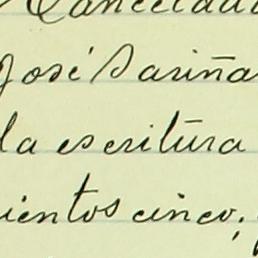 Cancelada
José Sariñan
la escritura
ientos cinco;